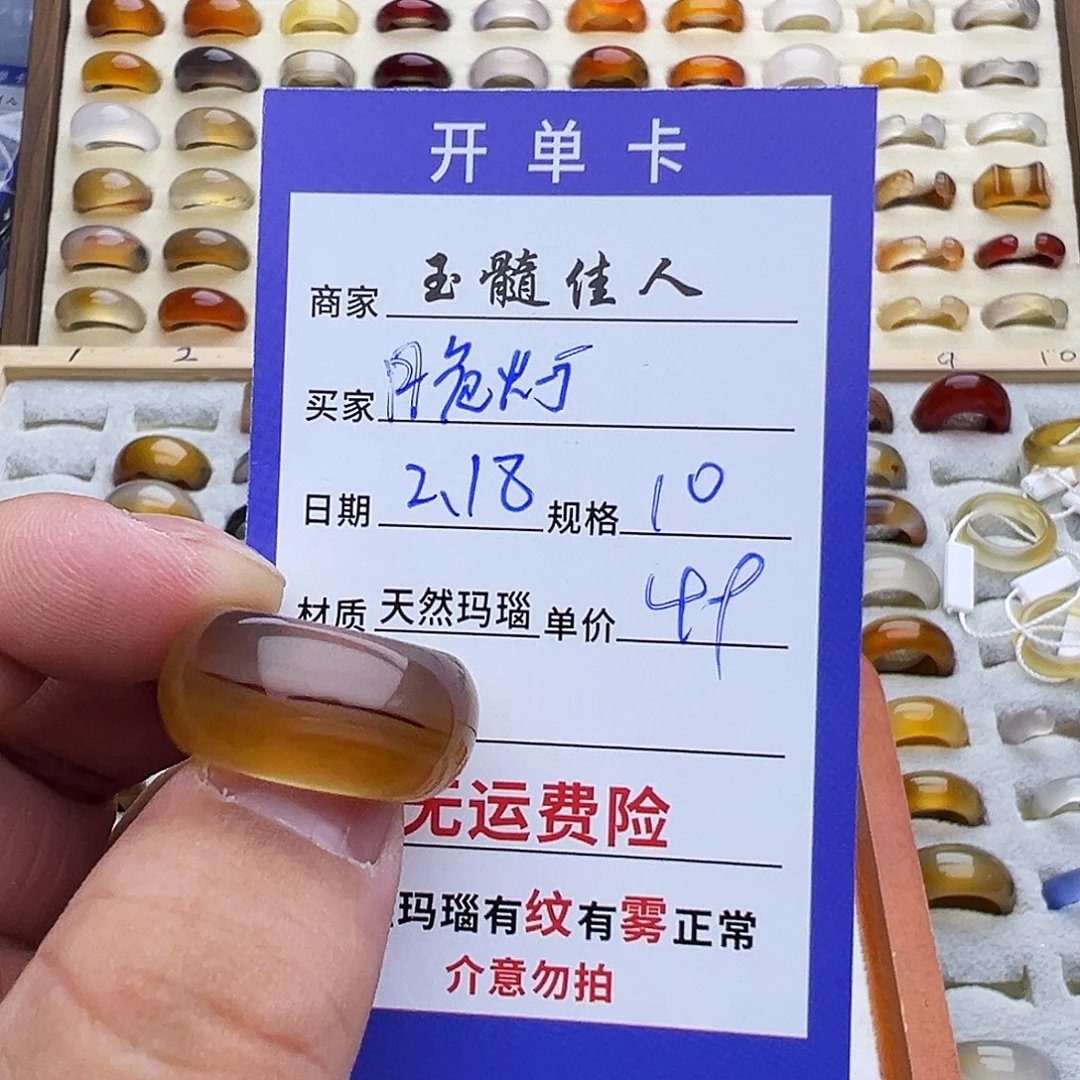 1 2 9 10
开单卡
商家 玉髓佳人
买家 危灯
日期 2.18 规格 10
材质 天然玛瑙 单价 49
无运费险
玛瑙有纹有雾正常
介意勿拍